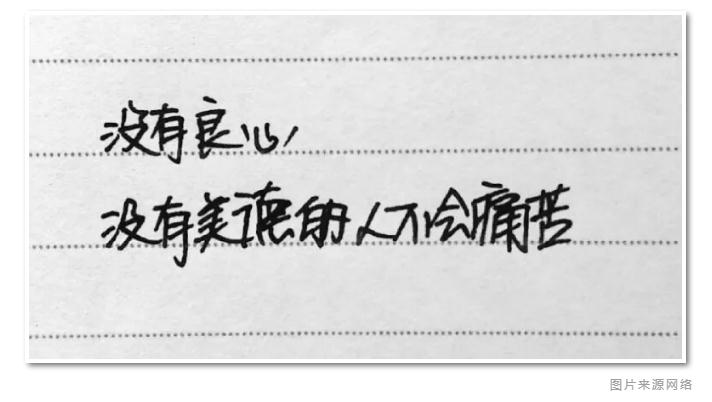 没有良心，
没有美德的人不会痛苦
图片来源网络